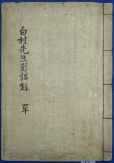 白村先生影誤錄 單